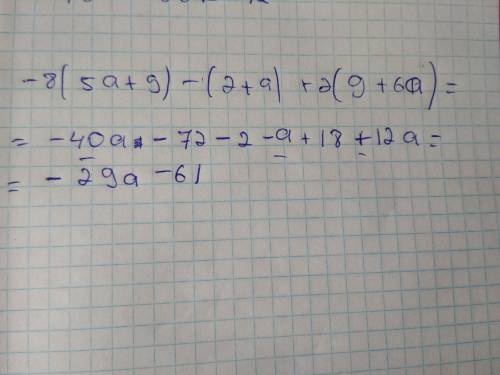 -8(5a+9)-(2+a)+2(9+6a)=
= -40a - 72 - 2 - a + 18 + 12a =
= - 29a - 61